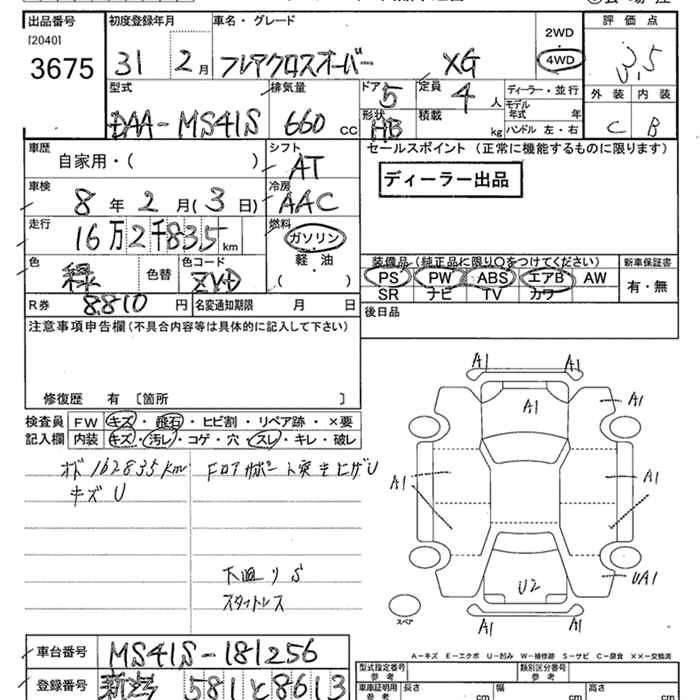 出品番号 初度登録年月 車名・グレード 評価点
[2040] 3675 31 2月 フレアクロスオーバー XG 2WD 4WD 3.5
型式 DAA-MS41S 排気量 660 cc ドア 5 定員 4 人 ディーラー・並行 外装 内装
形状 HB 積載 kg モデル年式 年 ハンドル 左・右 C B
車歴 自家用・( ) シフト AT セールスポイント (正常に機能するものに限ります)
ディーラー出品
車検 8 年 2 月(3日) 冷房 AAC
走行 16万2千835 km 燃料 ガソリン 軽・油 ( )
色 緑 色替 色コード ZVD
装備品 (純正品に限り○をつけてください) 新車保証書
PS PW ABS エアB AW 有・無
SR ナビ TV カワ
R券 8.810 円 名変通知期限 月 日 後日品
注意事項申告欄(不具合内容等は具体的に記入して下さい)
修復歴 有 〔箇所 〕
検査員 FW キズ・飛石・ヒビ割・リペア跡・×要
記入欄 内装 キズ・汚レ・コゲ・穴・スレ・キレ・破レ
オド162835km
キズ U
下廻りS
A1 A1
A1 A1
A1 A1
U2 UA1
スペア A1 A1
A-キズ E-エクボ U-凹み W-補修跡 S-サビ C-腐食 ××-交換済
車台番号 MS41S-181256
登録番号 581 と 8613
型式指定番号 参考 類別区分番号 参考
車庫証明用 参考 長さ cm 幅 cm 高さ cm